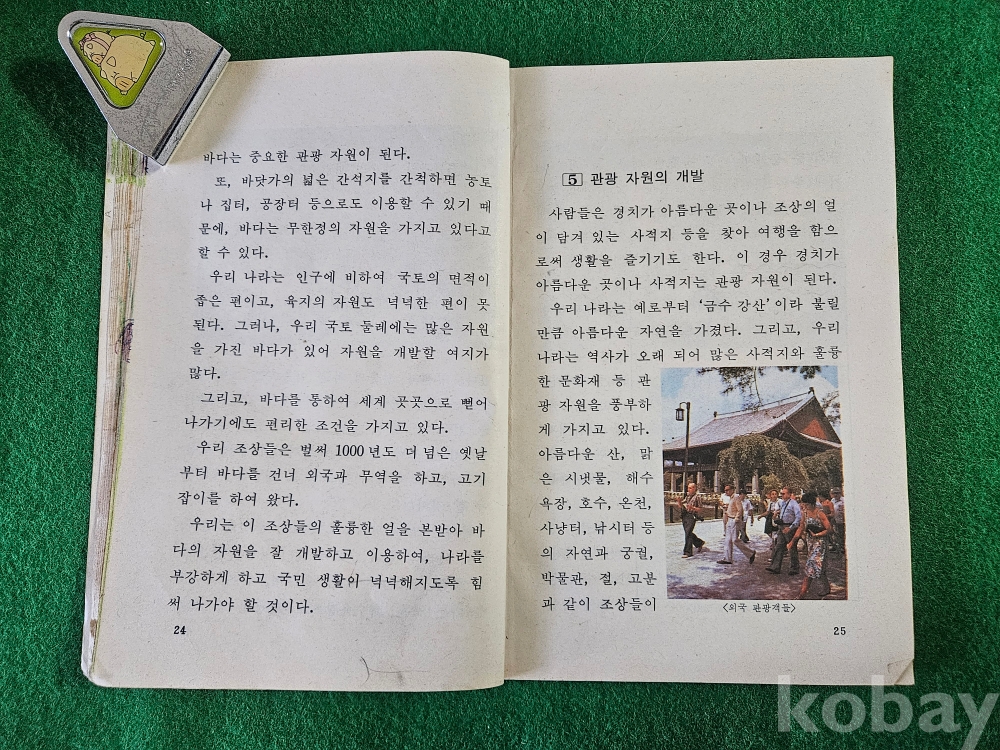 바다는 중요한 관광 자원이 된다.
또, 바닷가의 넓은 간석지를 간척하면 농토
나 집터, 공장터 등으로도 이용할 수 있기 때
문에, 바다는 무한정의 자원을 가지고 있다고
할 수 있다.
우리 나라는 인구에 비하여 국토의 면적이
좁은 편이고, 육지의 자원도 넉넉한 편이 못
된다. 그러나, 우리 국토 둘레에는 많은 자원
을 가진 바다가 있어 자원을 개발할 여지가
많다.
그리고, 바다를 통하여 세계 곳곳으로 뻗어
나가기에도 편리한 조건을 가지고 있다.
우리 조상들은 벌써 1000년도 더 넘은 옛날
부터 바다를 건너 외국과 무역을 하고, 고기
잡이를 하여 왔다.
우리는 이 조상들의 훌륭한 얼을 본받아 바
다의 자원을 잘 개발하고 이용하여, 나라를
부강하게 하고 국민 생활이 넉넉해지도록 힘
써 나가야 할 것이다.
24
5 관광 자원의 개발
사람들은 경치가 아름다운 곳이나 조상의 얼
이 담겨 있는 사적지 등을 찾아 여행을 함으
로써 생활을 즐기기도 한다. 이 경우 경치가
아름다운 곳이나 사적지는 관광 자원이 된다.
우리 나라는 예로부터 ‘금수 강산’이라 불릴
만큼 아름다운 자연을 가졌다. 그리고, 우리
나라는 역사가 오래 되어 많은 사적지와 훌륭
한 문화재 등 관
광 자원을 풍부하
게 가지고 있다.
아름다운 산, 맑
은 시냇물, 해수
욕장, 호수, 온천,
사냥터, 낚시터 등
의 자연과 궁궐,
박물관, 절, 고분
과 같이 조상들이
<외국 관광객들>
25
kobay